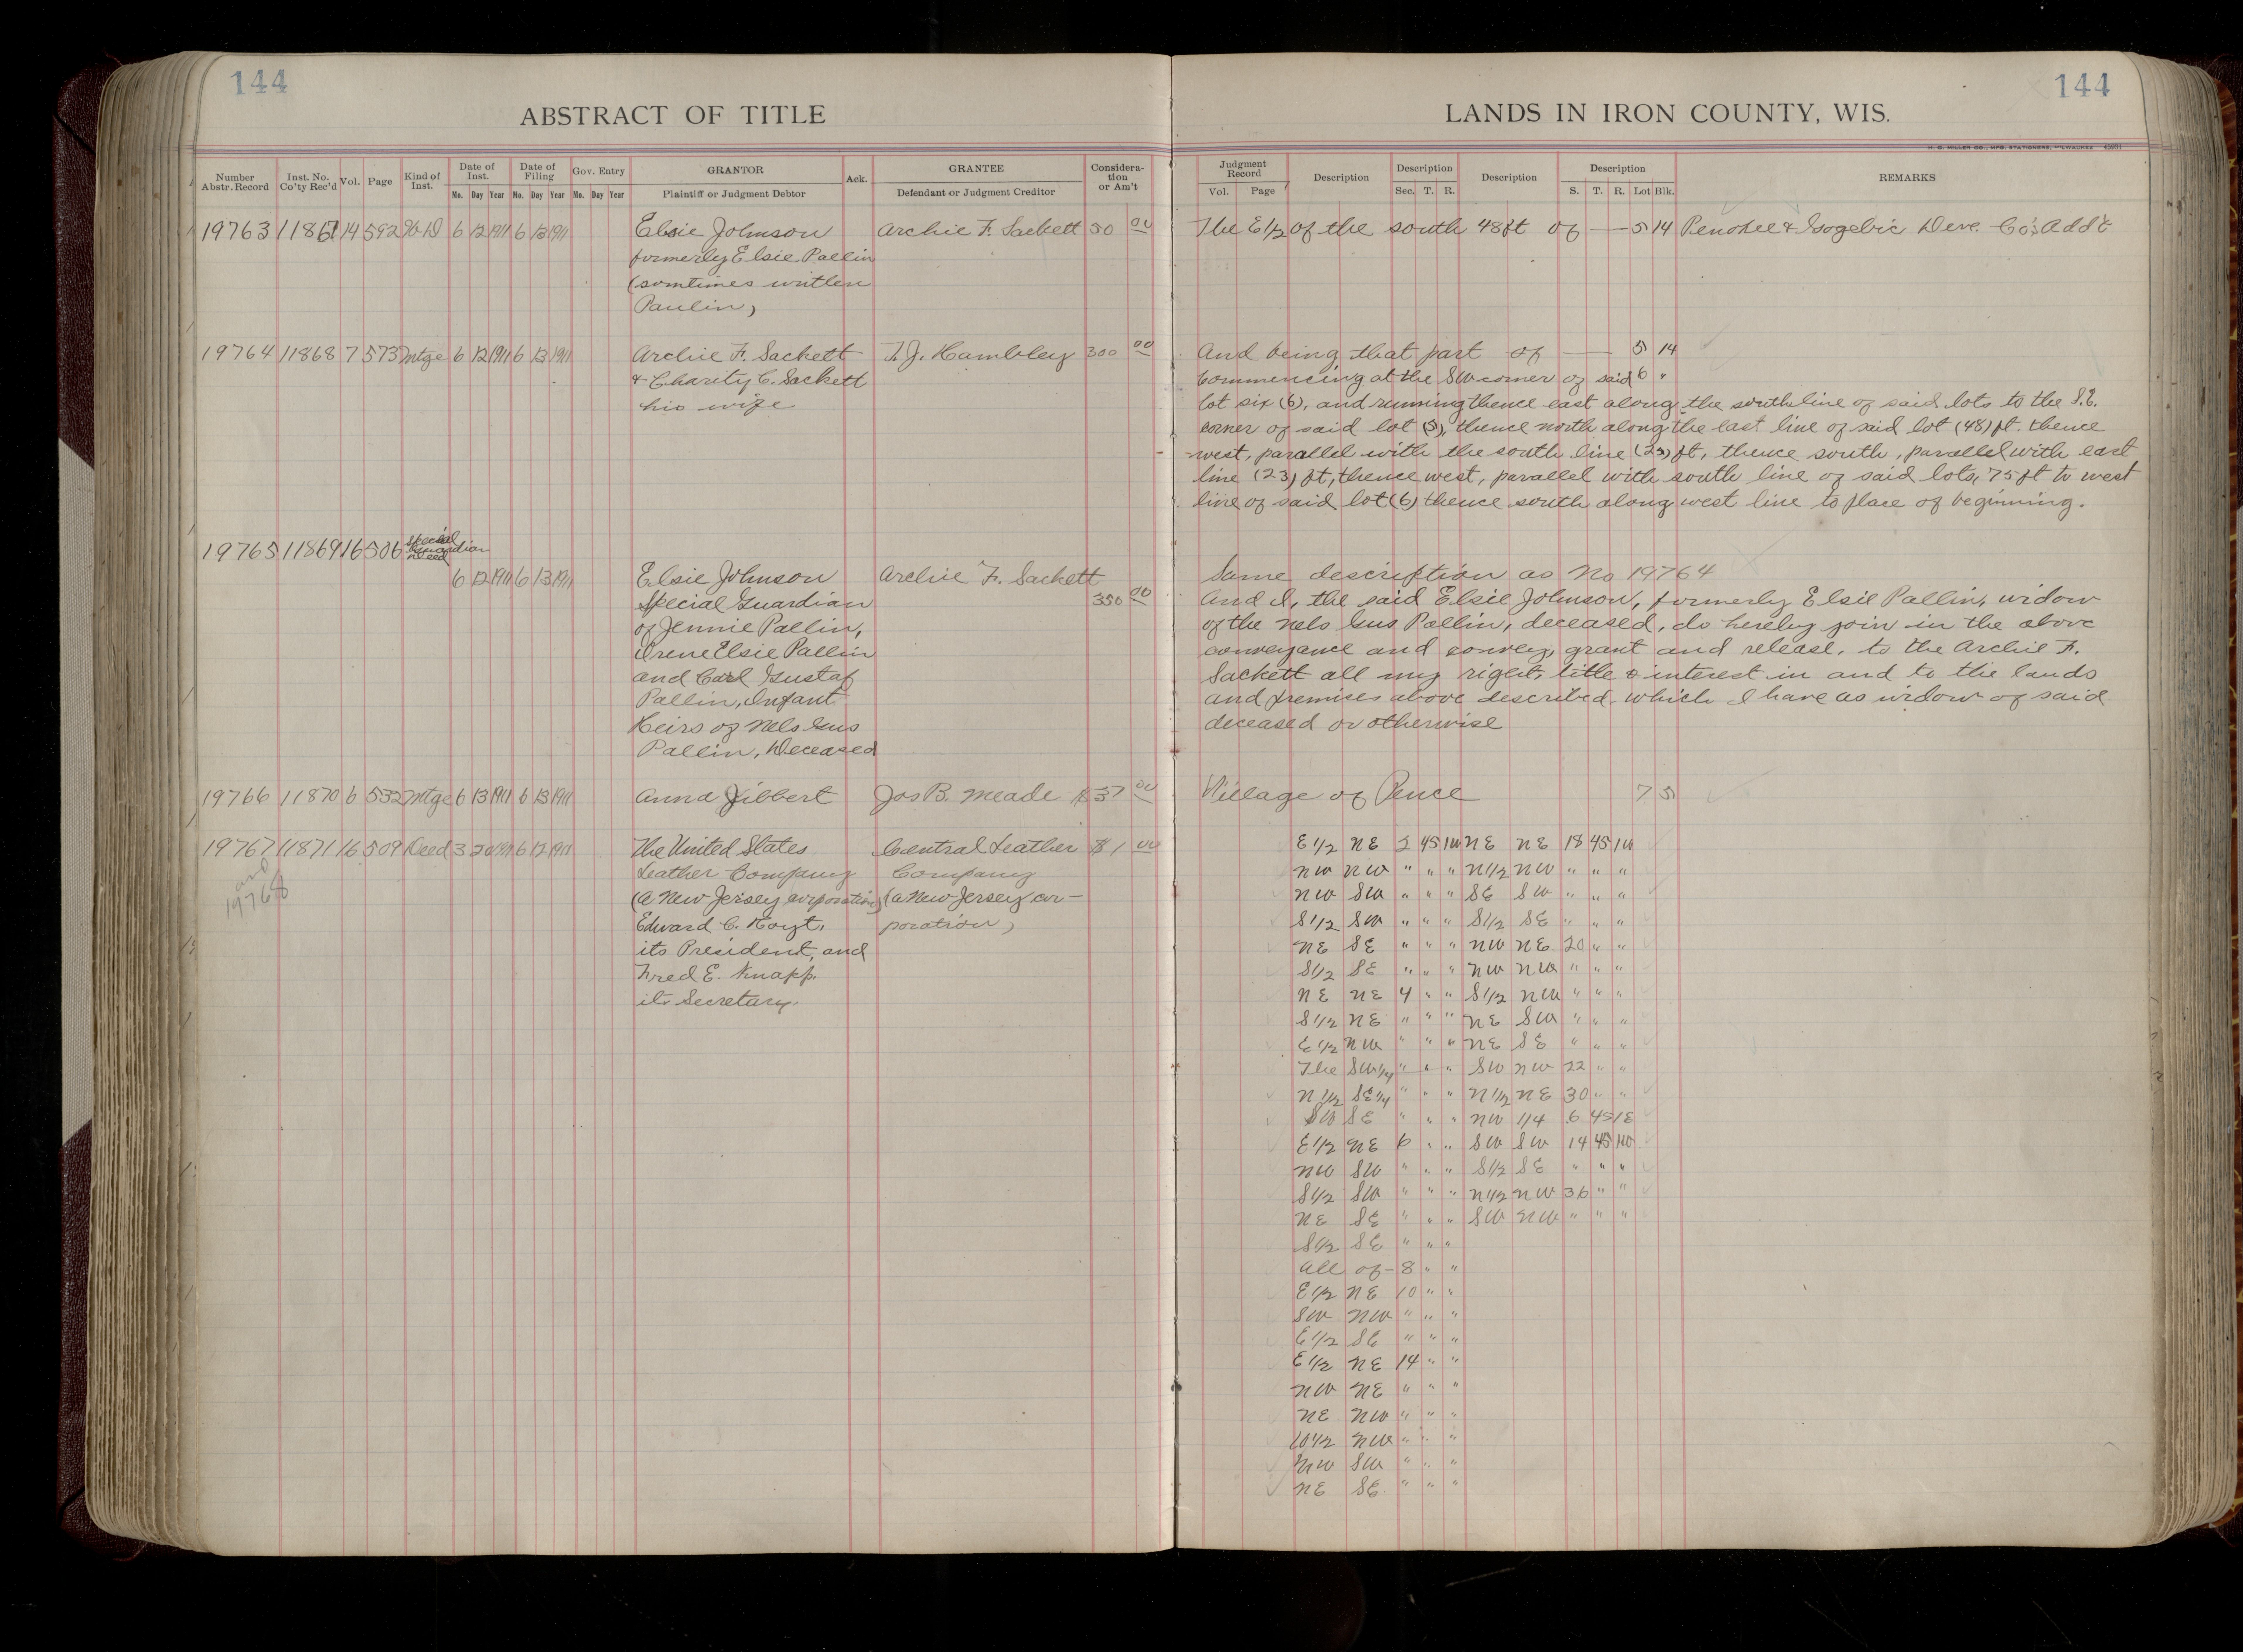 144
ABSTRACT OF TITLE
Number Abstr. Record Inst. No. Co'ty Rec'd Vol. Page Kind of Inst. Date of Inst. Mo. Day Year Date of Filing Mo. Day Year Gov. Entry Mo. Day Year GRANTOR Plaintiff or Judgment Debtor Ack. GRANTEE Defendant or Judgment Creditor Considera-tion or Am't
19763 11867 14 592 W.D 6 12 1911 6 13 1911 Elsie Johnson Archie F. Sackett 50 00
formerly Elsie Pallin
(somtimes written
Paulin)
19764 11868 7 573 Mtge 6 12 1911 6 13 1911 Archie F. Sackett T. J. Hambley 300 00
& Charity C. Sackett
his wife
19765 11869 16 506 Special Guardian Deed
6 12 1911 6 13 1911 Elsie Johnson Archie F. Sackett
Special Guardian 350 00
of Jennie Pallin,
Irene Elsie Pallin
and Carl Gustaf
Pallin, Infant
Heirs of Nels Gus
Pallin, Deceased
19766 11870 6 532 Mtge 6 13 1911 6 13 1911 Anna Jibbert Jos B. Meade $ 37 00
19767 11871 16 509 Deed 3 20 1911 6 12 1911 The United States Central Leather $ 1 00
and Leather Company Company
19768 (a New Jersey corporation) (a New Jersey cor-
Edward C. Hoyt, poration)
its President, and
Fred E. Knapp.
its Secretary.
144
LANDS IN IRON COUNTY, WIS.
H. G. MILLER CO., MFG. STATIONERS, MILWAUKEE
Judgment Record Vol. Page Description Description Sec. T. R. Description Description S. T. R. Lot Blk. REMARKS
The E1/2 of the south 48ft of — 5 14 Penokee & Gogebic Deve. Co's Add't
And being that part of — 5 14
Commencing at the SW corner of said 6 "
lot six (6), and running thence east along the south line of said lots to the S.E.
corner of said lot (5), thence north along the east line of said lot (48) ft. thence
west, parallel with the south line (25) ft, thence south, parallel with east
line (23) ft, thence west, parallel with south line of said lots, 75 ft to west
line of said lot (6) thence south along west line to place of beginning.
Same description as No 19764
And I, the said Elsie Johnson, formerly Elsie Pallin, widow
of the Nels Gus Pallin, deceased, do hereby join in the above
conveyance and convey, grant and release, to the Archie F.
Sackett all my right, title & interest in and to the lands
and premises above described which I have as widow of said
deceased or otherwise
Village of Pence 7 5
E1/2 NE 2 45 1W NE NE 18 45 1W
NW NW " " " N1/2 NW " " "
NW SW " " " SE SW " " "
S1/2 SW " " " S1/2 SE " " "
NE SE " " " NW NE 20 " "
S1/2 SE " " " NW NW " " "
NE NE 4 " " S1/2 NW " " "
S1/2 NE " " " NE SW " " "
E1/2 NW " " " NE SE " " "
The SW1/4 " " " SW NW 22 " "
N1/2 SE1/4 " " " N1/2 NE 30 " "
SW SE " " " NW 1/4 6 45 1E
E1/2 NE 6 " " SW SW 14 45 1W
NW SW " " " S1/2 SE " " "
S1/2 SW " " " N1/2 NW 36 " "
NE SE " " " SW NW " " "
S1/2 SE " " "
All of - 8 " "
E1/2 NE 10 " "
SW NW " " "
E1/2 SE " " "
E1/2 NE 14 " "
NW NE " " "
NE NW " " "
W1/2 NW " " "
NW SW " " "
NE SE " " "